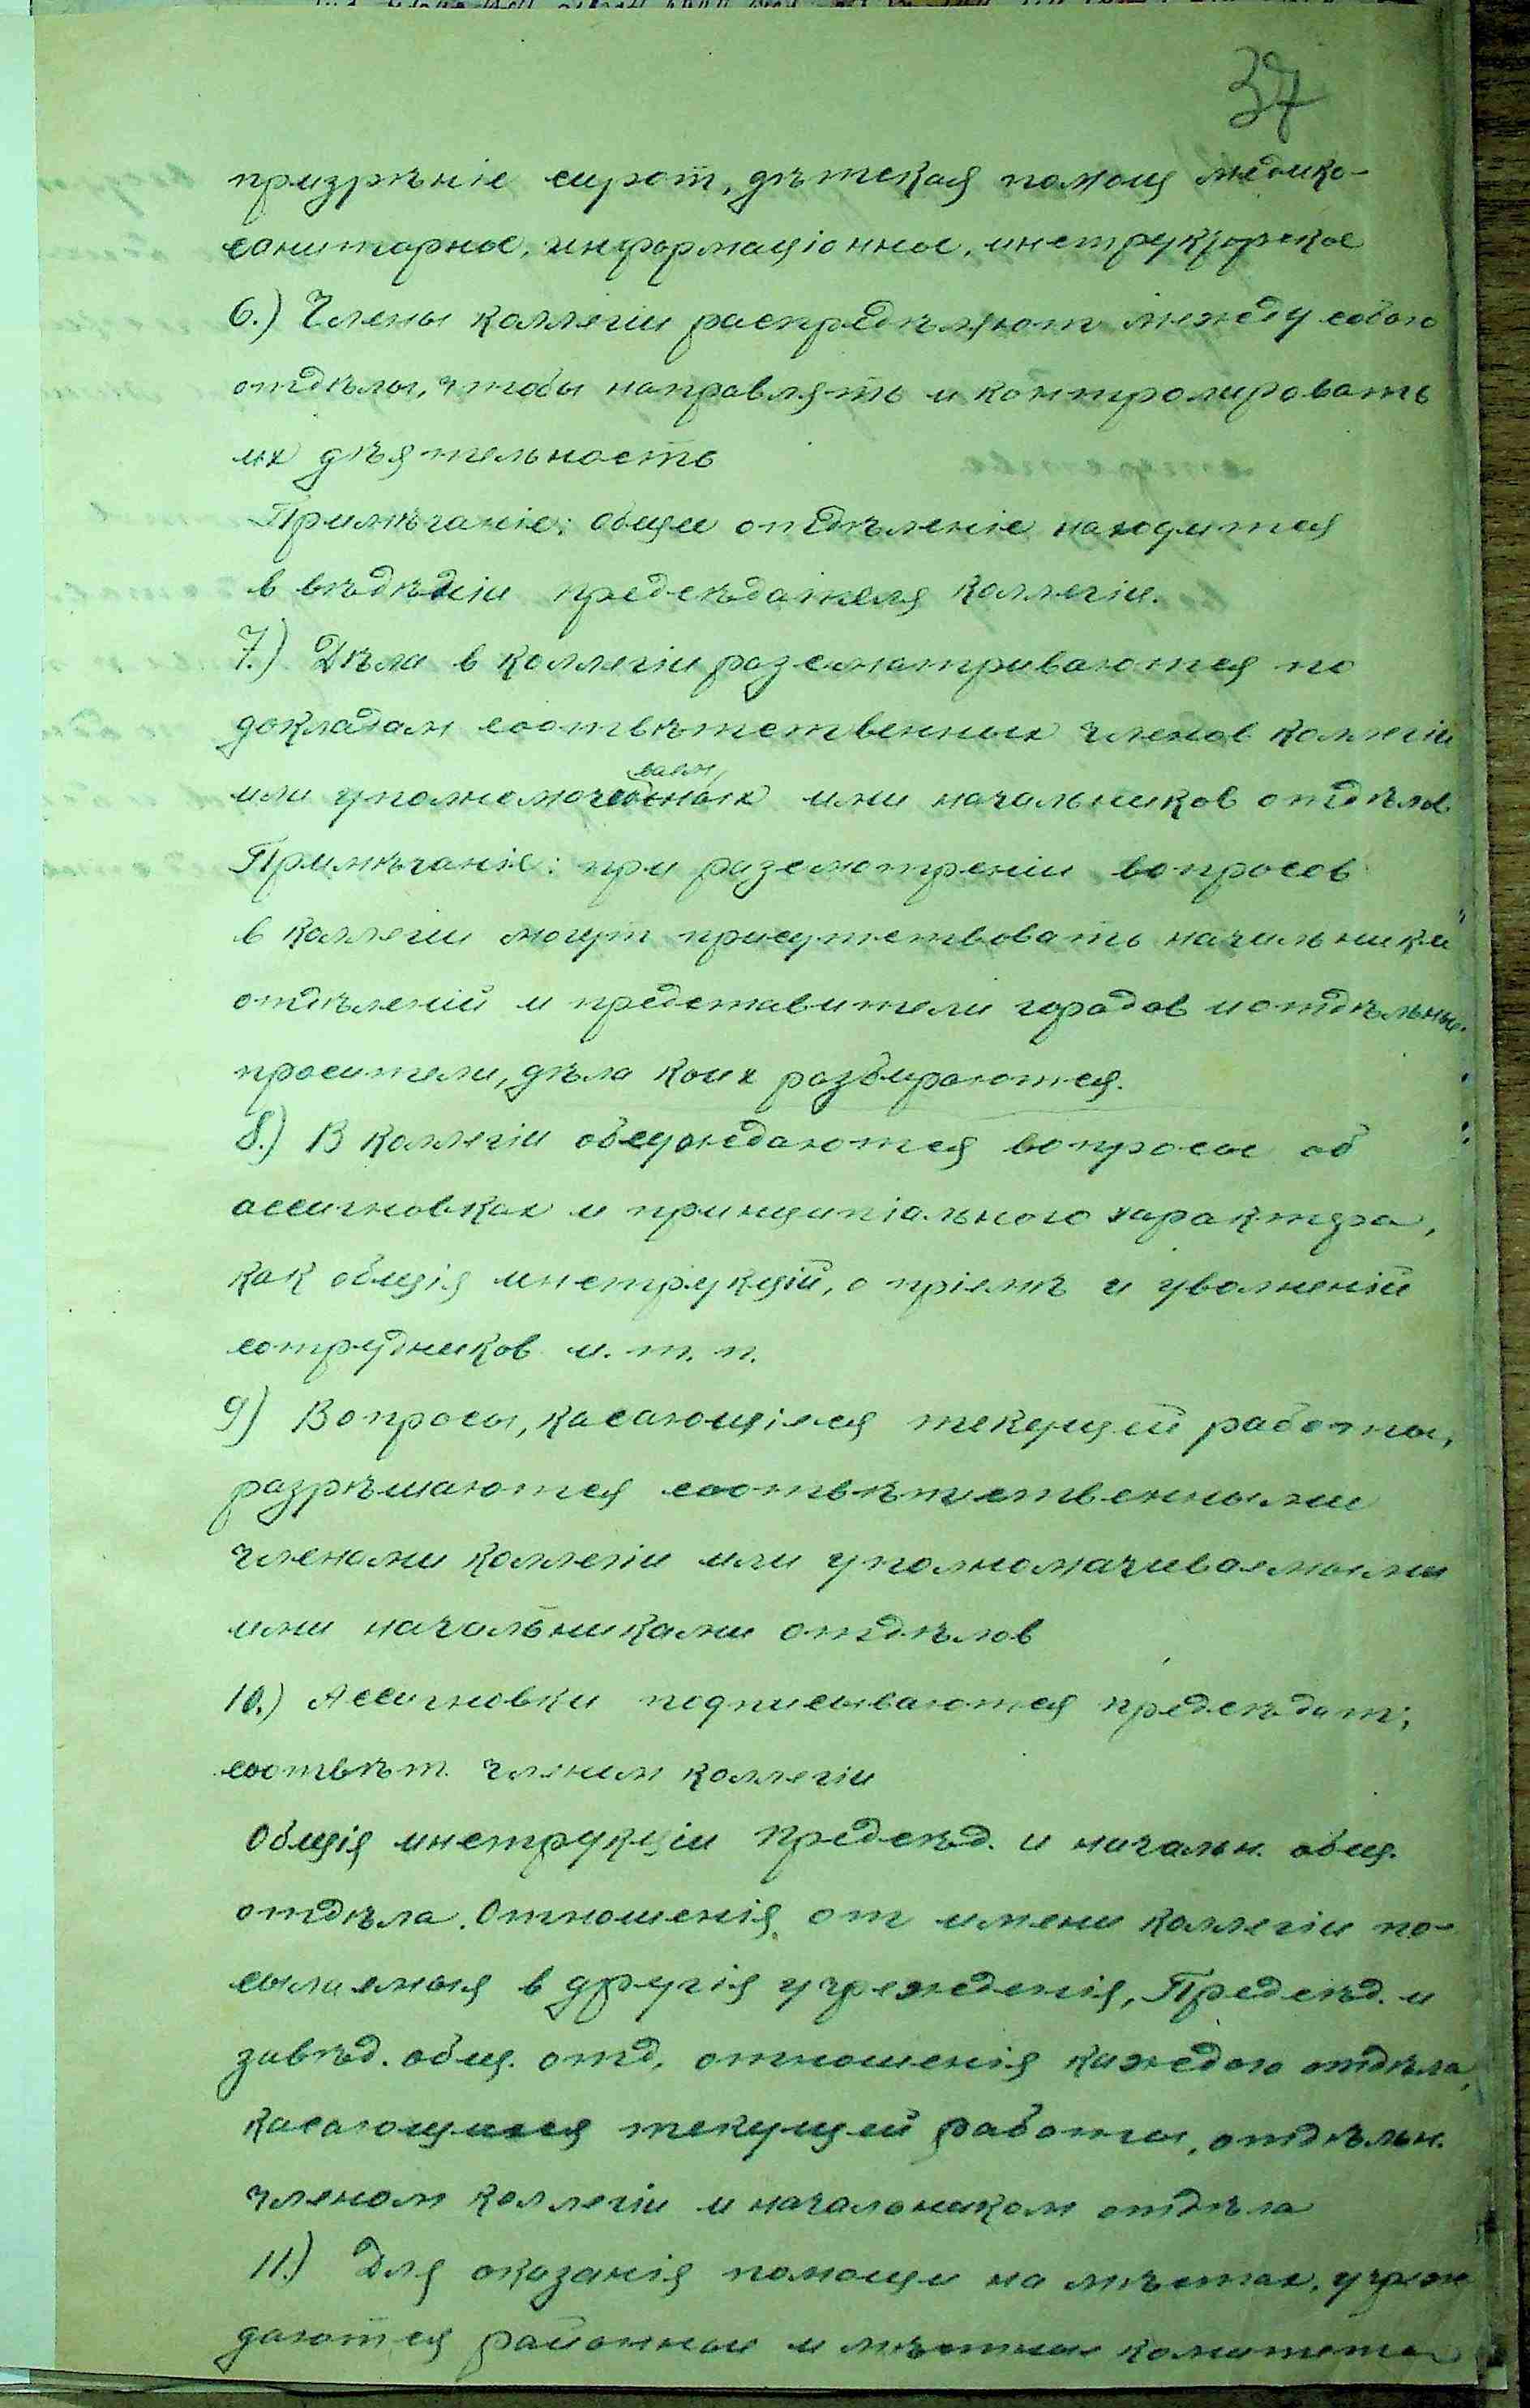 37
призрѣніе сирот, дѣтская помощ медико-
санитарное, информаціонное, инструкторское
6.) Члены коллегіи распредѣляют между собою
отдѣлы, чтобы направлять и контролировать
их дѣятельность
Примѣчаніе: общее отдѣленіе находится
в вѣдѣніи предсѣдателя коллегіи.
7.) Дѣла в коллегіи разсматриваются по
докладам соотвѣтственных членов коллегіи
или ими начальников отдѣлов
Примѣчаніе: при разсмотреніи вопросов
в коллегіи могут присутствовать начальники
отдѣленій и представители городов и отдѣльные
просители, дѣла коих разбираются.
8.) В коллегіи обсуждаются вопросы об
ассигновках и принципіального характера,
как общія инструкцій, о пріемѣ и уволненій
сотрудников и. т. п.
9) Вопросы, касающіеся текущей работы,
разрѣшаются соотвѣтственными
членами коллегіи или уполномачиваемыми
ими начальниками отдѣлов
10.) Ассигновки подписываются предсѣдат.,
соотвѣт. членам коллегіи
Общія инструкціи Предсѣд. и начальн. общ.
отдѣла. Отношенія от имени коллегіи по-
сылаемыя в другія учрежденія, Предсѣд. и
завѣд. общ. отд. отношенія каждого отдѣла,
касающиеся текущей работы, отдѣльн.
членом коллегіи и начальником отдѣла
11.) Для оказанія помощи на мѣстах, учреж
даются районные и мѣстные комитеты